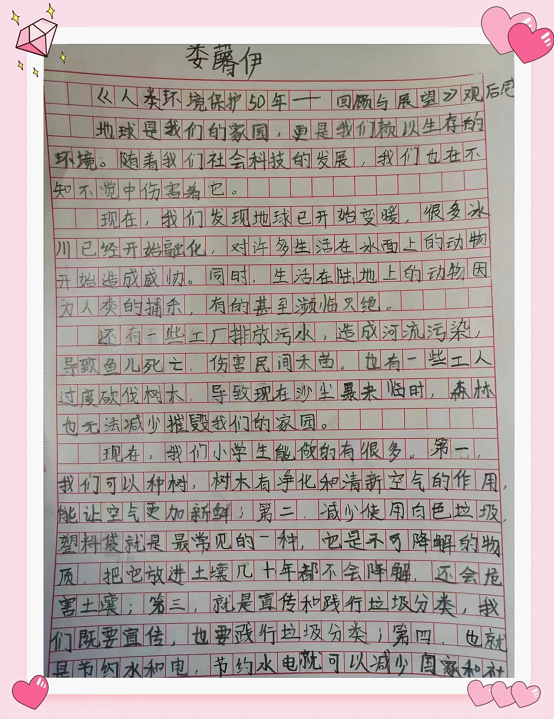 娄馨伊
《人类环境保护50年——回顾与展望》观后感
地球是我们的家园，更是我们赖以生存的
环境。随着我们社会科技的发展，我们也在不
知不觉中伤害着它。
现在，我们发现地球已开始变暖，很多冰
川已经开始融化，对许多生活在冰面上的动物
开始造成威胁。同时，生活在陆地上的动物因
为人类的捕杀，有的甚至濒临灭绝。
还有一些工厂排放污水，造成河流污染，
导致鱼儿死亡，伤害民间禾苗。也有一些工人
过度砍伐树木，导致现在沙尘暴来临时，森林
也无法减少摧毁我们的家园。
现在，我们小学生能做的有很多。第一，
我们可以种树，树木有净化和清新空气的作用，
能让空气更加新鲜；第二，减少使用白色垃圾，
塑料袋就是最常见的一种，也是不可降解的物
质，把它放进土壤几十年都不会降解，还会危
害土壤；第三，就是宣传和践行垃圾分类，我
们既要宣传，也要践行垃圾分类；第四，也就
是节约水和电，节约水电就可以减少国家和社